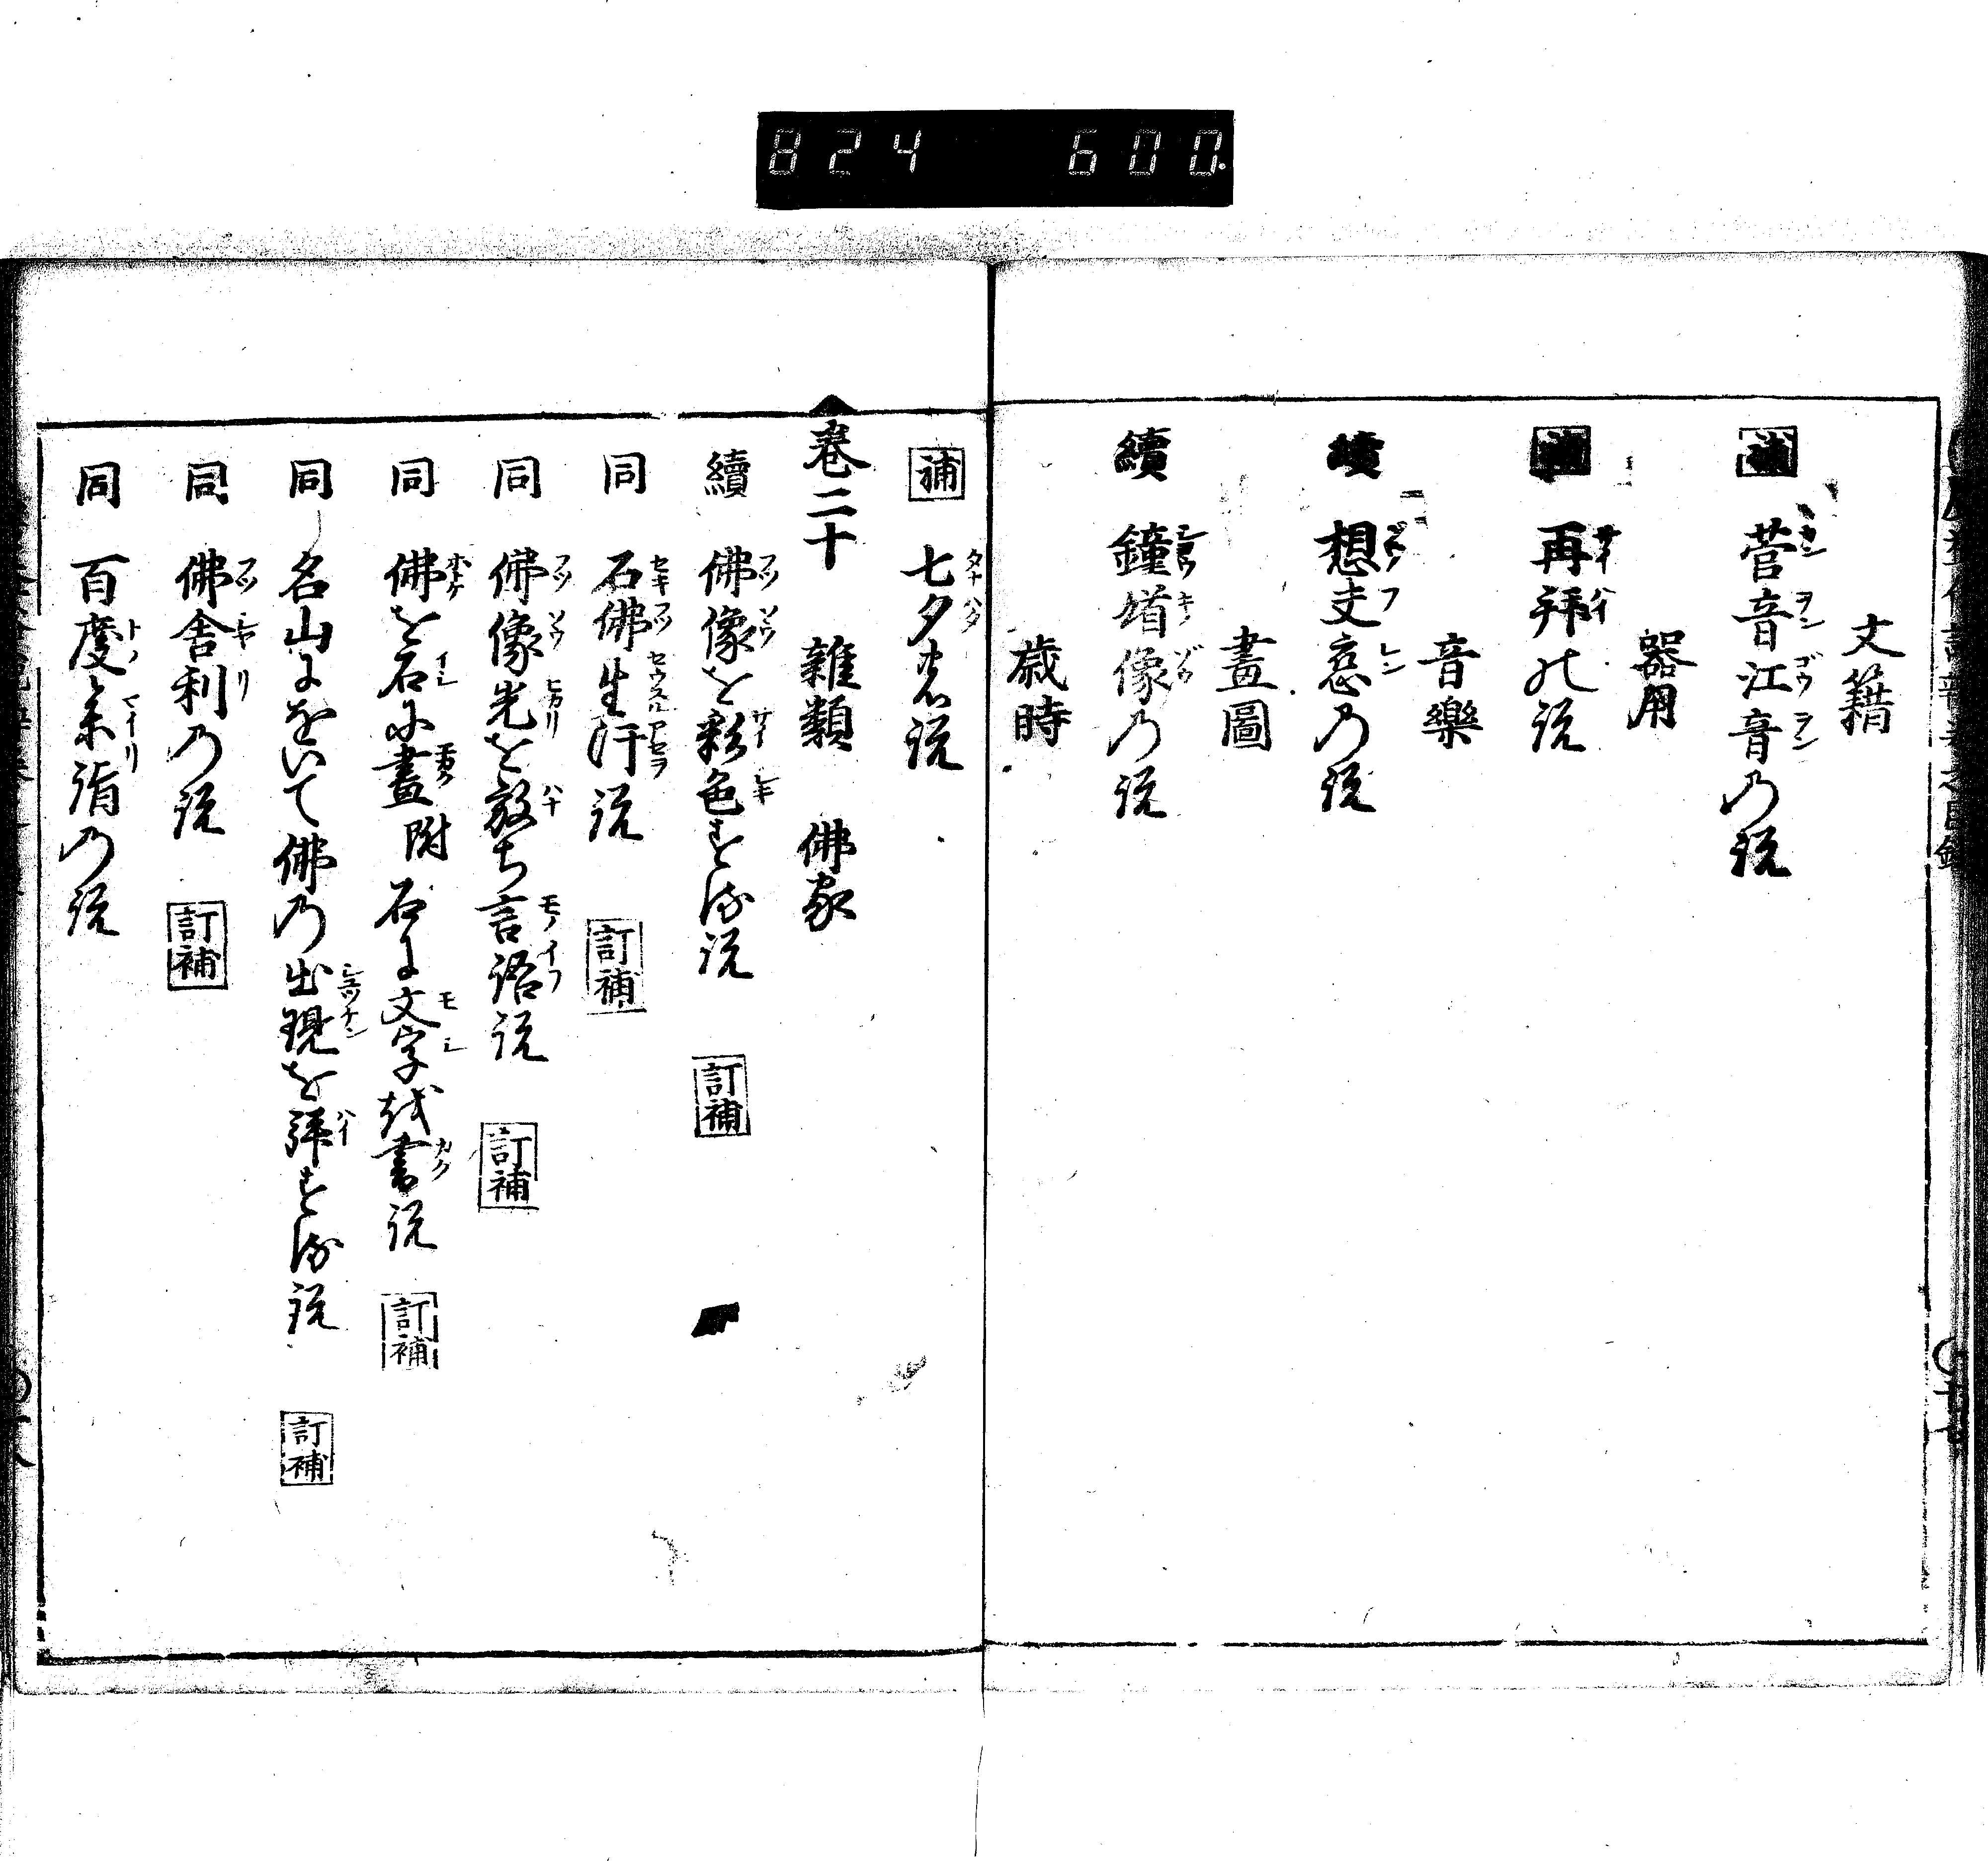 824 600.
文籍
補 菅音江音の説
器用
補 再拝の説
音樂
續 想夫恋の説
畫圖
續 鐘馗像の説
歳時
補 七夕の説
巻二十 雜類 佛家
續 佛像を彩色する説 訂補
同 石佛生汗説 訂補
同 佛像光を放ち言語説 訂補
同 佛を石に畫附石に文字を書説 訂補
同 名山にをいて佛の出現を拝する説 訂補
同 佛舎利の説 訂補
同 百度参詣の説